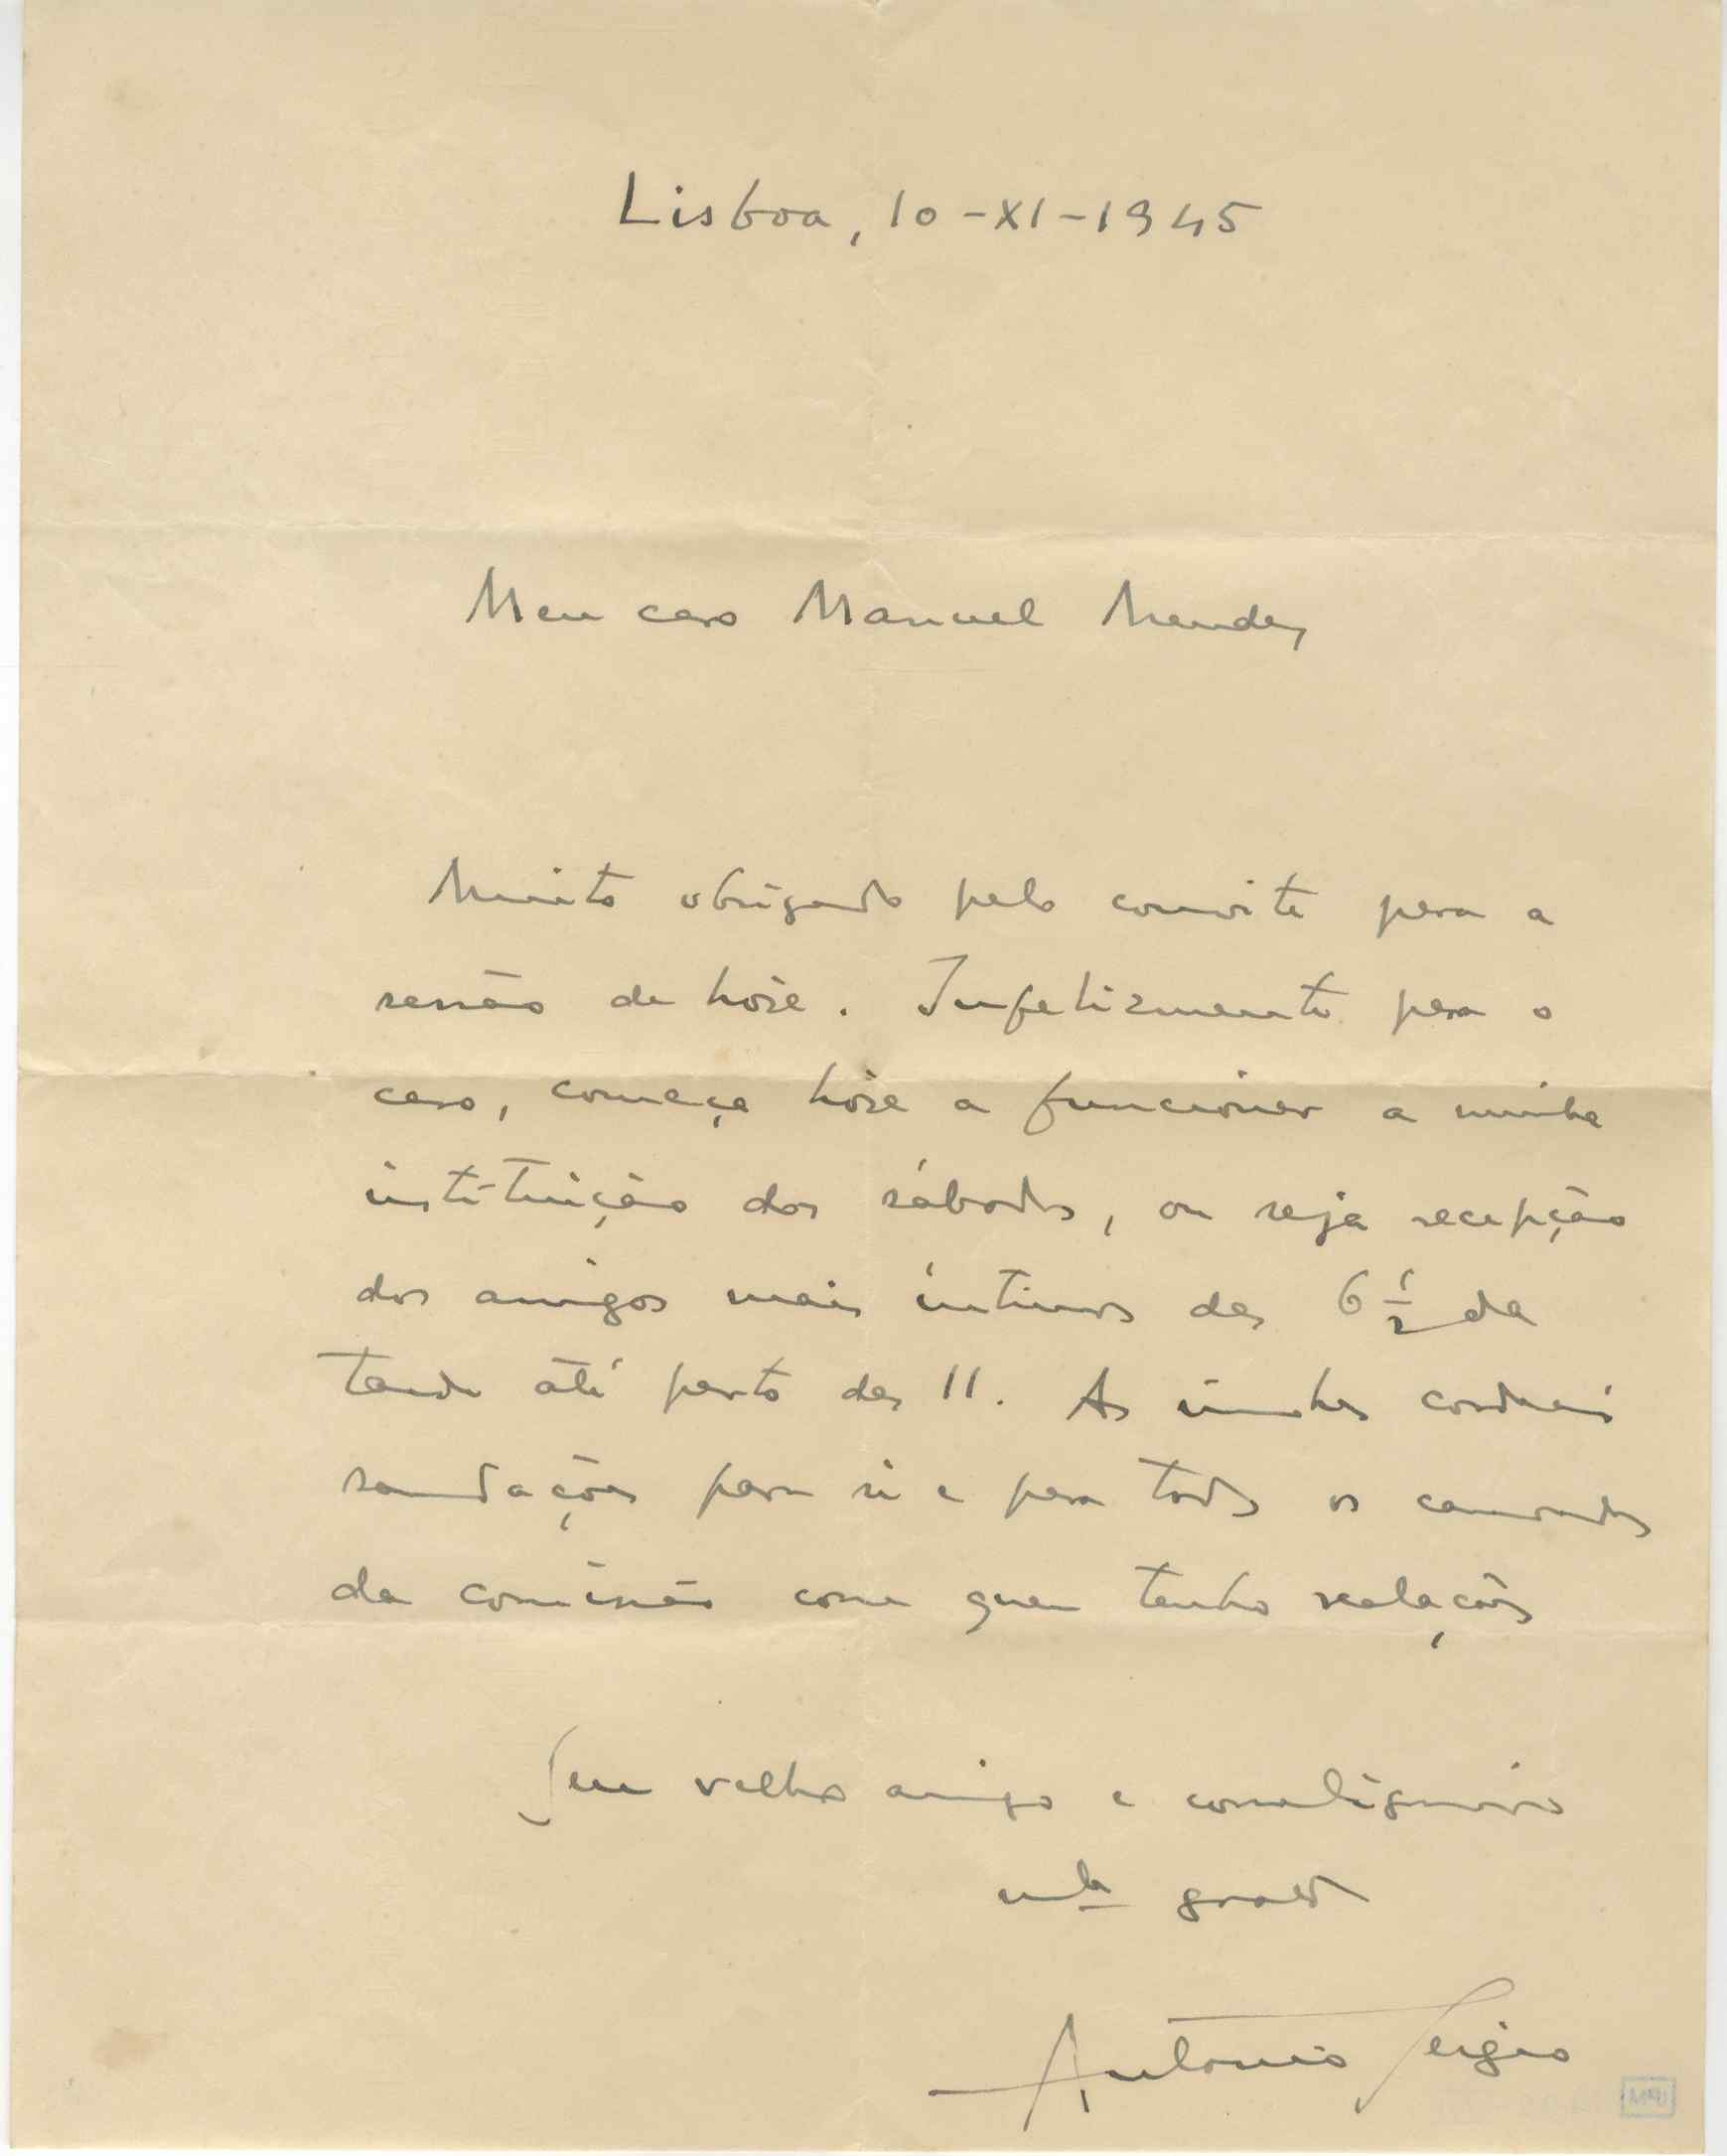 Lisboa, 10-XI-1945
Meu caro Manuel Mendes
Muito obrigado pelo convite para a
sessão de hoje. Infelizmente para o
caso, começa hoje a funcionar a minha
instituição dos sábados, ou seja recepção
dos amigos mais íntimos das 6 1/2 da
tarde até perto das 11. As minhas cordeais
saudações para si e para todos os camaradas
da comissão com quem tenho relações
Seu velho amigo e correligionário
mto grato
António Sérgio